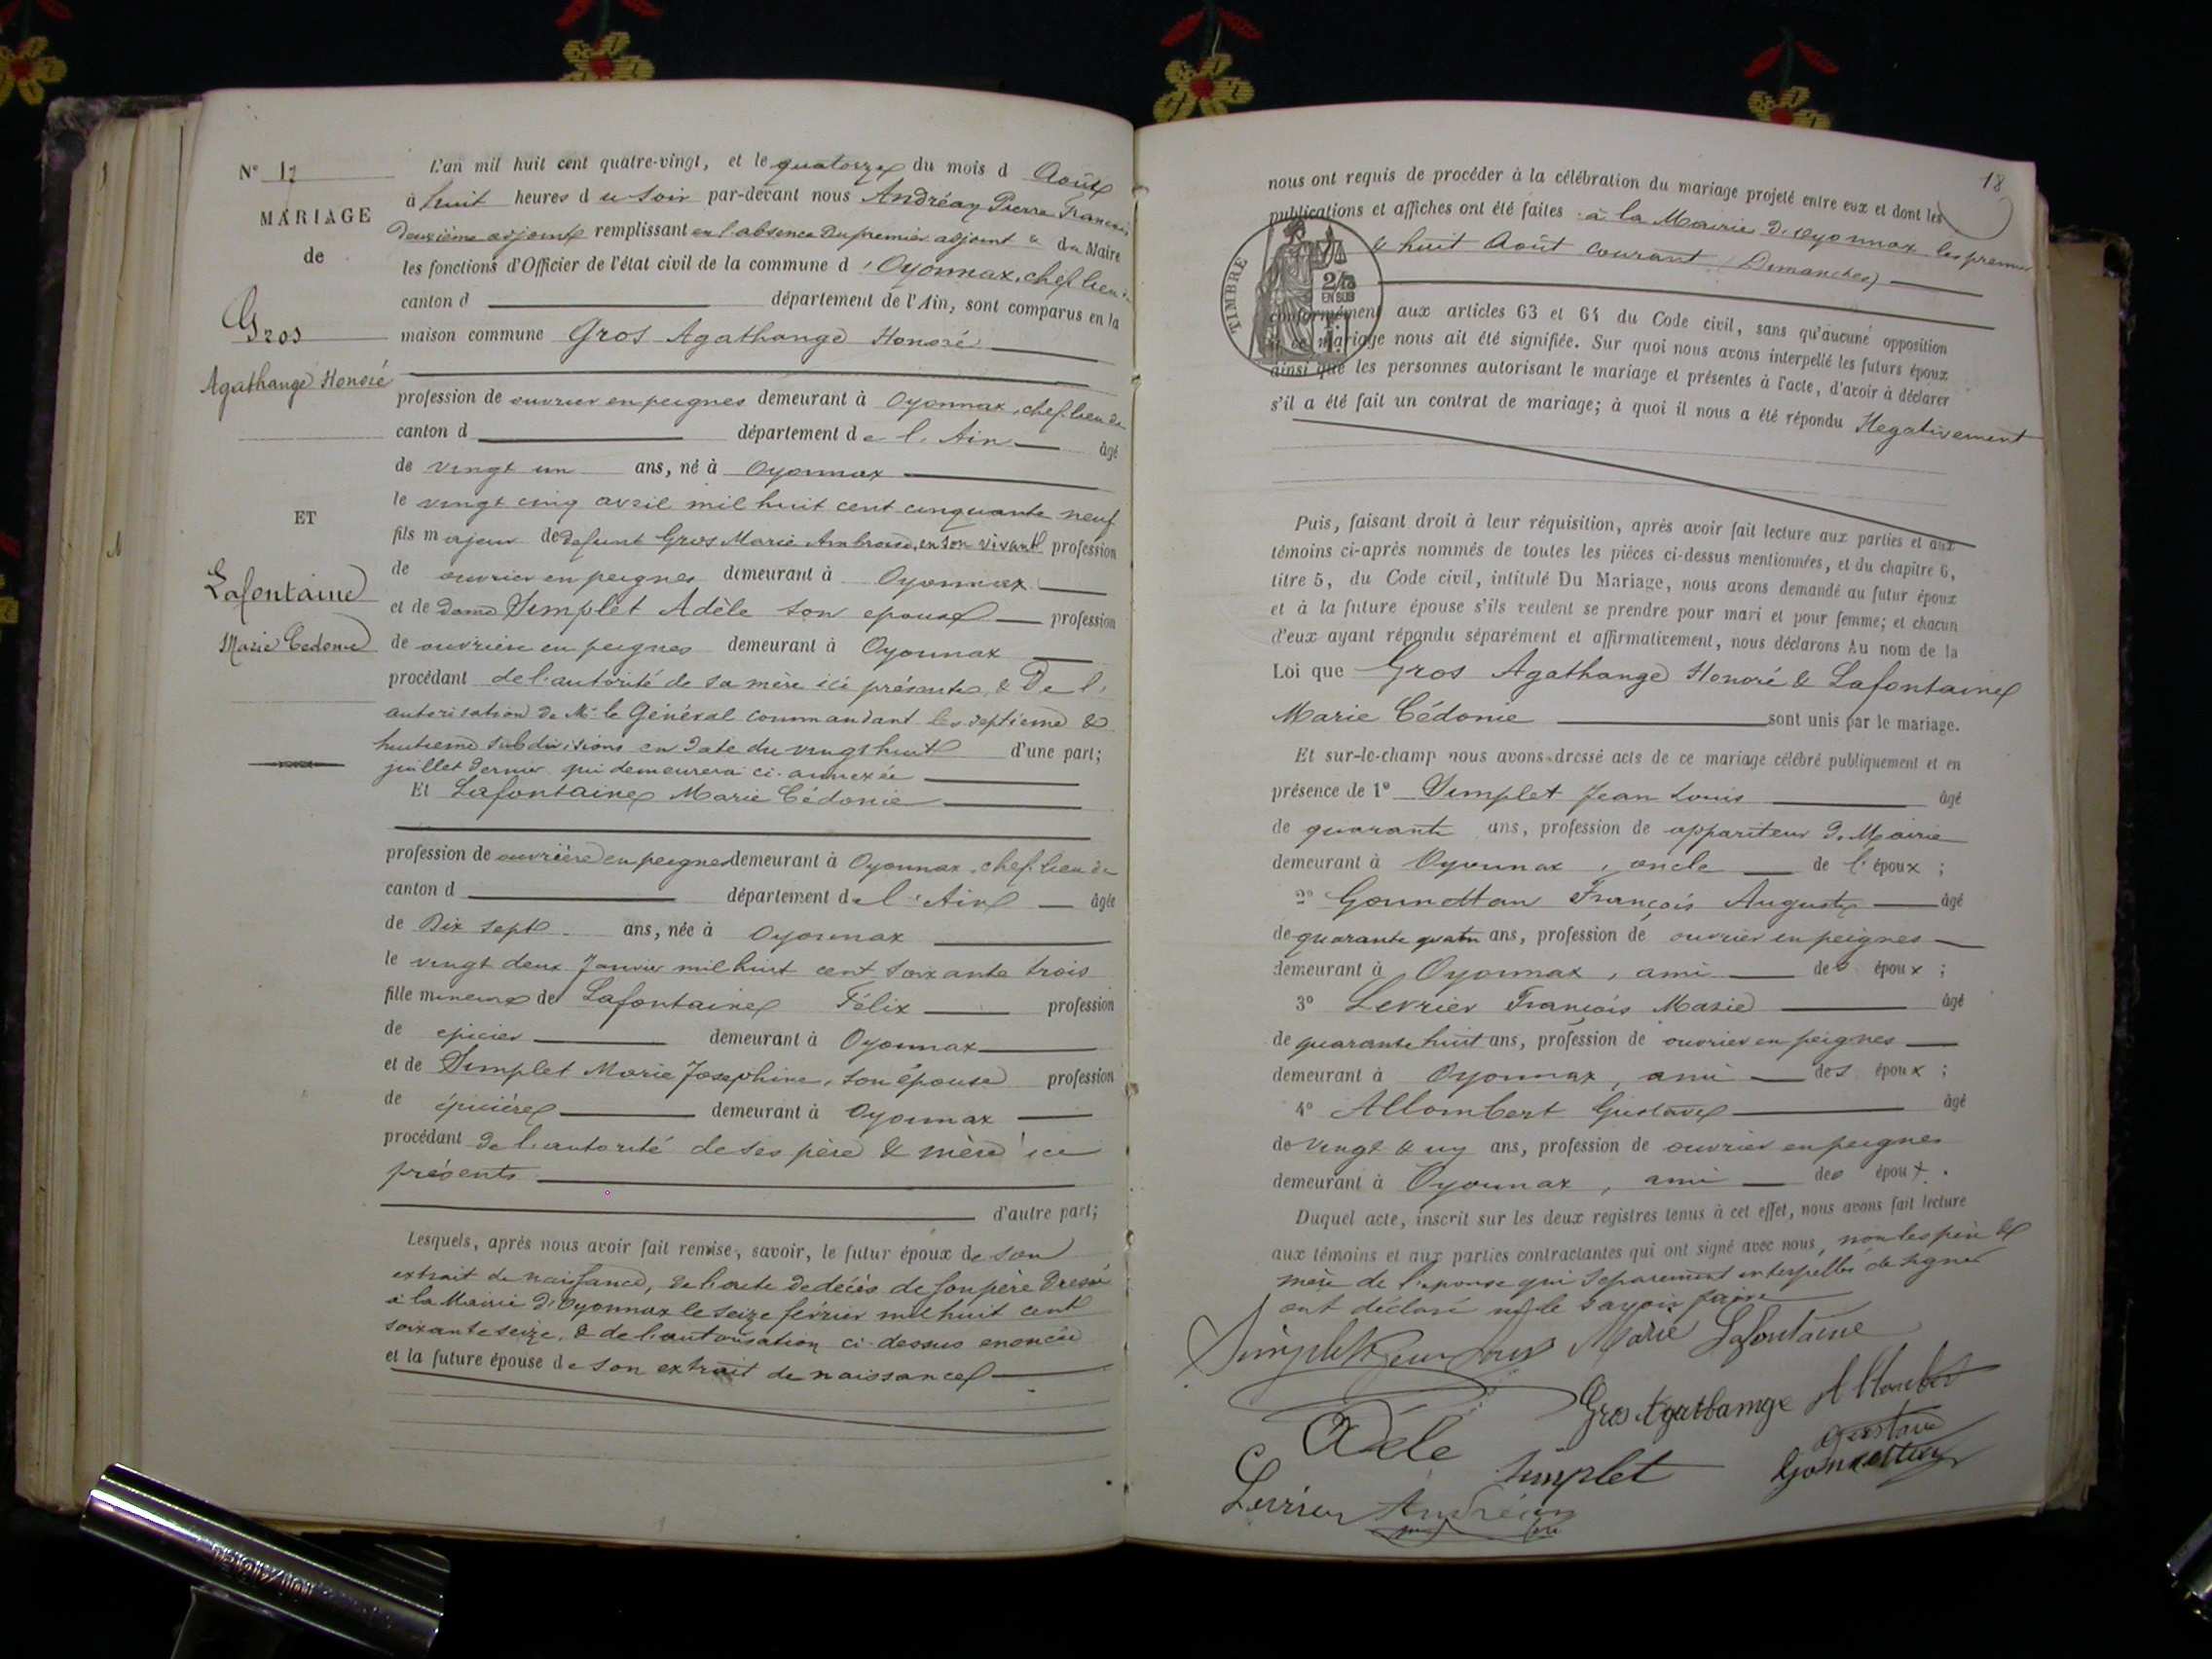 N° 17
MARIAGE
de
Gros
Agathange Honoré
ET
Lafontaine
Marie Cédonie
L'an mil huit cent quatre-vingt, et le quatorze du mois d Août
à huit heures d u soir par-devant nous Andréan Pierre François
Deuxième adjoint remplissant en l'absence du premier adjoint & du Maire
les fonctions d'Officier de l'état civil de la commune d 'Oyonnax, chef lieu de
canton d département de l'Ain, sont comparus en la
maison commune Gros Agathange Honoré
profession de ouvrier en peignes demeurant à Oyonnax, chef lieu de
canton d département de l'Ain âgé
de vingt un ans, né à Oyonnax
le vingt cinq avril mil huit cent cinquante neuf
fils majeur de defunt Gros Marie Ambroise, en son vivant profession
de ouvrier en peignes demeurant à Oyonnax
et de dame Simplet Adèle son epouse profession
de ouvrière en peignes demeurant à Oyonnax
procédant de l'autorité de sa mère ici présente, & De l'
autorisation de Mr le Général commandant les septieme &
huitieme subdivisions en date du vingt huit d'une part;
juillet dernier qui demeurera ci-annexée
Et Lafontaine Marie Cédonie
profession de ouvrière en peignes demeurant à Oyonnax, chef lieu de
canton d département de l'Ain âgée
de Dix sept ans, née à Oyonnax
le vingt deux Janvier mil huit cent soixante trois
fille mineure de Lafontaine Félix profession
de epicier demeurant à Oyonnax
et de Simplet Marie Josephine, son épouse profession
de épicière demeurant à Oyonnax
procédant de l'autorité de ses père & mère ici
présents
d'autre part;
Lesquels, après nous avoir fait remise, savoir, le futur époux de son
extrait de naissance, de l'acte de décès de son père dressé
à la Mairie d'Oyonnax le seize février mil huit cent
soixante seize, & de l'autorisation ci-dessus enoncée
et la future épouse de son extrait de naissance
18
nous ont requis de procéder à la célébration du mariage projeté entre eux et dont les
publications et affiches ont été faites à la Mairie d'Oyonnax les premier
& huit Août courant (Dimanches)
TIMBRE
2/10
EN SUS
conformément aux articles 63 et 64 du Code civil, sans qu'aucune opposition
à ce mariage nous ait été signifiée. Sur quoi nous avons interpellé les futurs époux
ainsi que les personnes autorisant le mariage et présentes à l'acte, d'avoir à déclarer
s'il a été fait un contrat de mariage; à quoi il nous a été répondu Négativement
Puis, faisant droit à leur réquisition, après avoir fait lecture aux parties et aux
témoins ci-après nommés de toutes les pièces ci-dessus mentionnées, et du chapitre 6,
titre 5, du Code civil, intitulé Du Mariage, nous avons demandé au futur époux
et à la future épouse s'ils veulent se prendre pour mari et pour femme; et chacun
d'eux ayant répondu séparément et affirmativement, nous déclarons Au nom de la
Loi que Gros Agathange Honoré & Lafontaine
Marie Cédonie sont unis par le mariage.
Et sur-le-champ nous avons dressé acte de ce mariage célébré publiquement et en
présence de 1° Simplet Jean Louis âgé
de quarante ans, profession de appariteur de Mairie
demeurant à Oyonnax, oncle de l' époux ;
2° Gounettan François Auguste âgé
de quarante quatre ans, profession de ouvrier en peignes
demeurant à Oyonnax, ami des époux ;
3° Levrier François Marie âgé
de quarante huit ans, profession de ouvrier en peignes
demeurant à Oyonnax, ami des époux ;
4° Allombert Gustave âgé
de vingt & un ans, profession de ouvrier en peignes
demeurant à Oyonnax, ami des époux.
Duquel acte, inscrit sur les deux registres tenus à cet effet, nous avons fait lecture
aux témoins et aux parties contractantes qui ont signé avec nous, non les père &
mère de l'epouse qui séparement interpellés de signer
ont déclaré ne le savoir faire
Simplet Jean Louis Marie Lafontaine
Gros Agathange Allombert
Gustave
Adèle
Simplet
Levrier Andréan